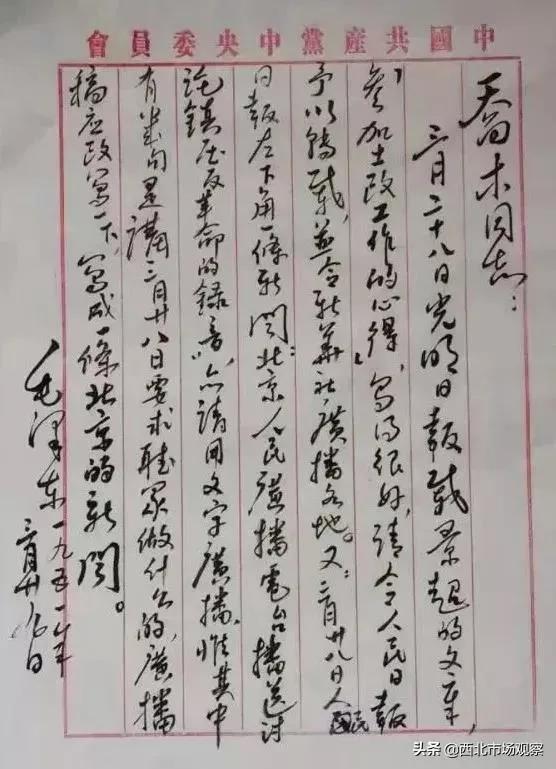 中國共產黨中央委員會
乔木同志：
三月二十八日光明日報載景超的文章，
「參加土改工作的心得」，寫得很好，請令人民日報
予以轉載，並令新華社廣播各地。又：三月廿八日人民
日報左下角一條新聞：北京人民廣播電台播送討
論鎮压反革命的錄音，亦請用文字廣播，惟其中
有幾句是講三月廿八日要求聽眾做什么的，廣播
稿应改寫一下，寫成一條北京的新聞。
毛澤東 一九五一年
三月廿九日
头条 @西北市场观察